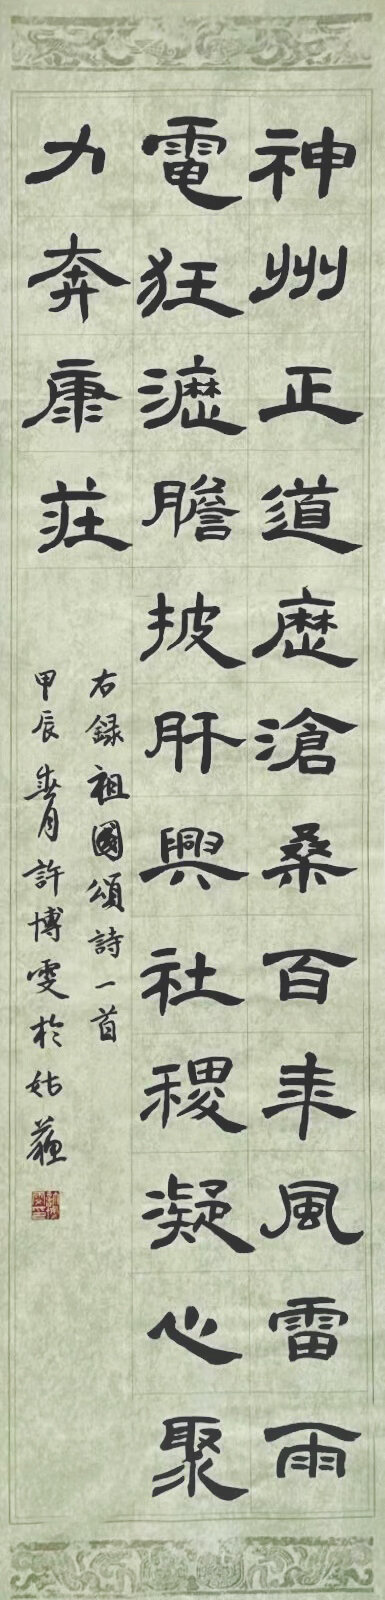 神州正道歷滄桑百年風雷雨
電狂瀝膽披肝興社稷凝心聚
力奔康莊
右錄祖國頌詩一首
甲辰春月許博雯於姑蘇